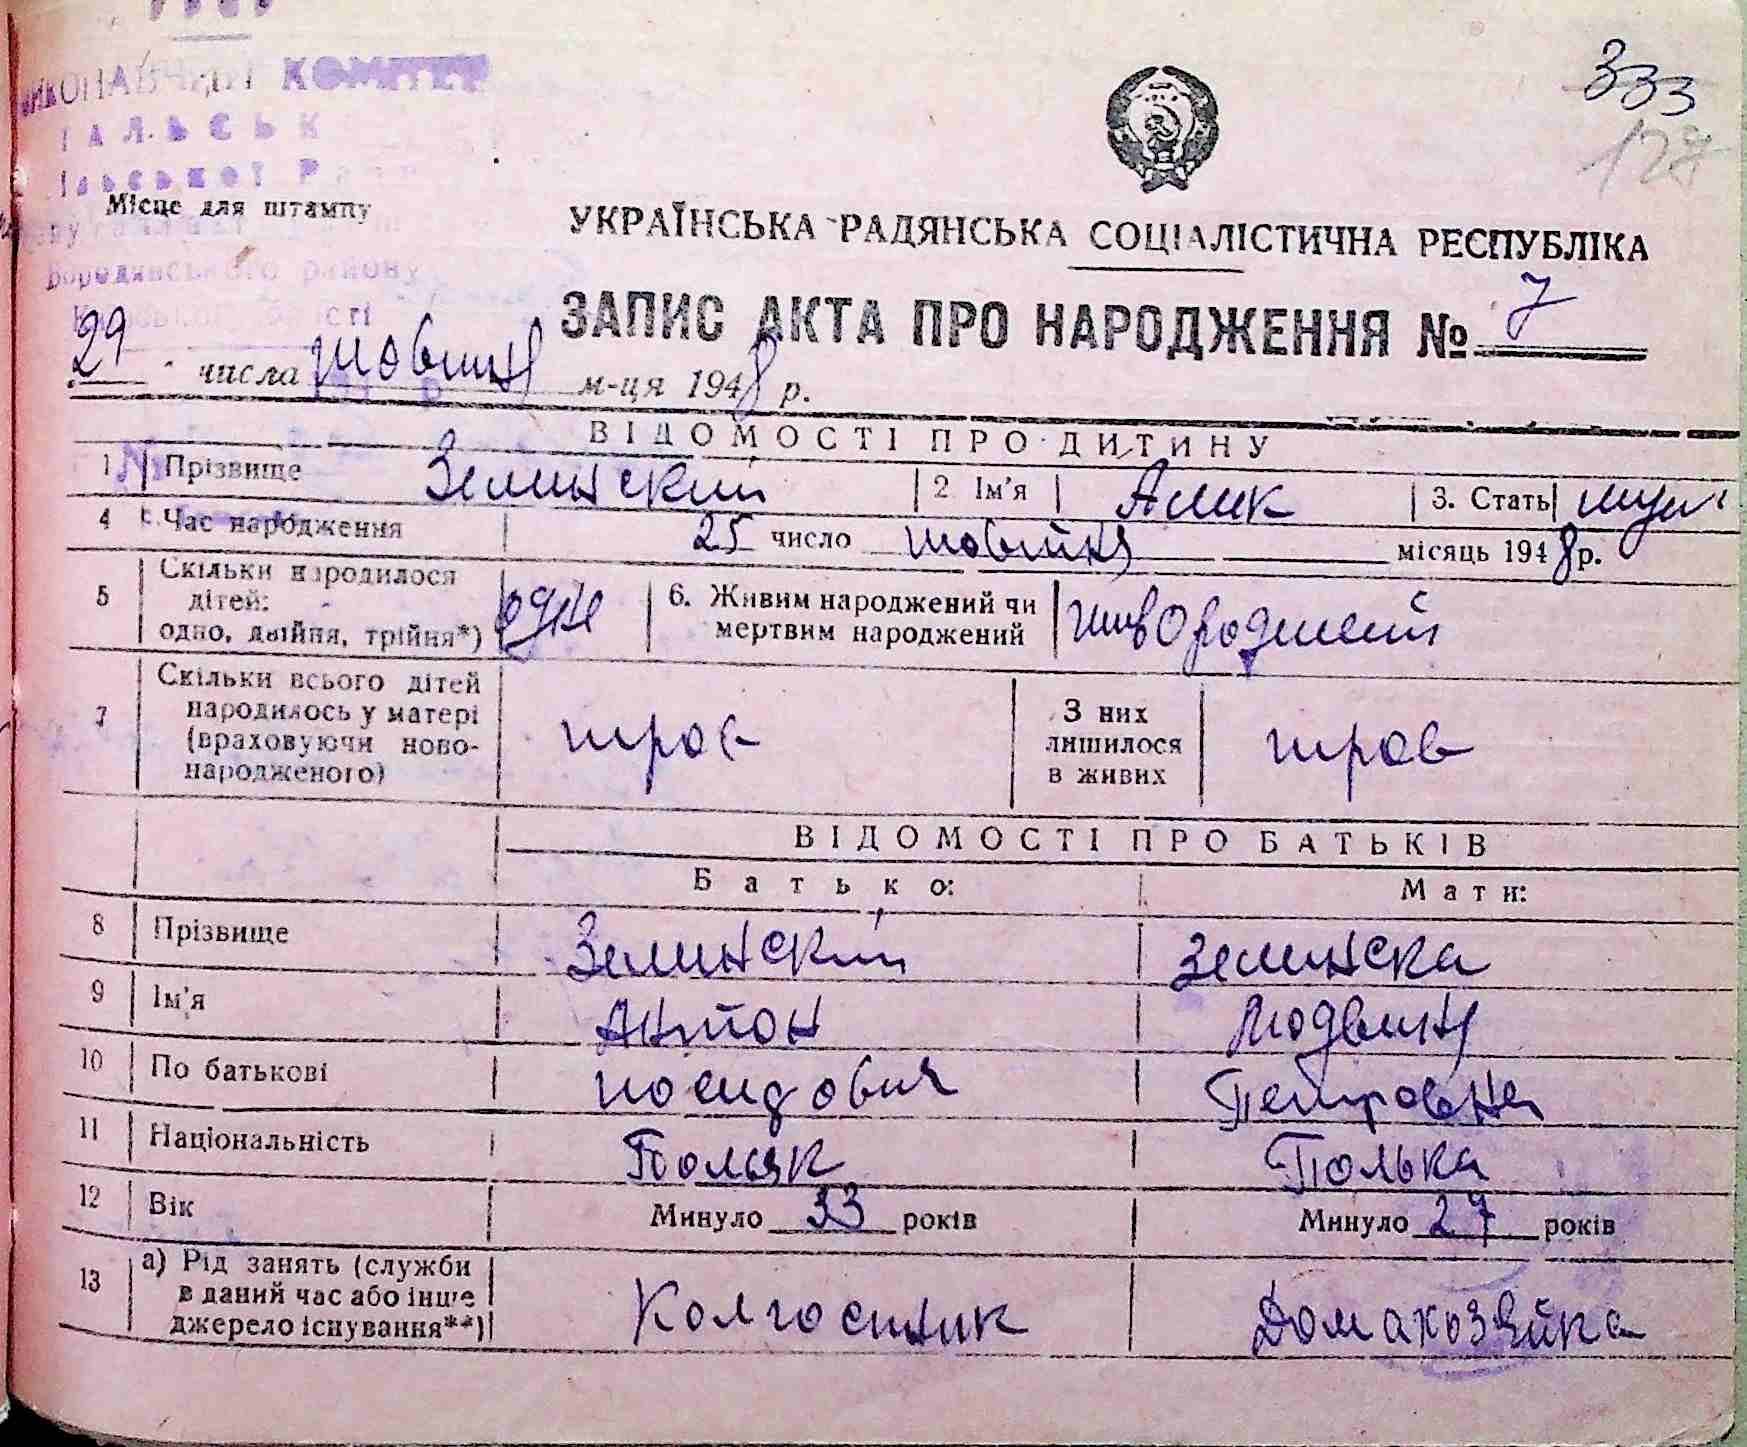 КОМІТЕТ
Місце для штампу
Бородянського району
333
127
УКРАЇНСЬКА РАДЯНСЬКА СОЦІАЛІСТИЧНА РЕСПУБЛІКА
ЗАПИС АКТА ПРО НАРОДЖЕННЯ № 7
29 числа жовтня м-ця 1948 р.
ВІДОМОСТІ ПРО ДИТИНУ
1 Прізвище Зелинский 2 Ім'я Алик 3. Стать муж
4 Час народження 25 число жовтня місяць 1948 р.
5 Скільки народилося
дітей:
одно, двійня, трійня*) одне
6. Живим народжений чи
мертвим народжений живородженій
7 Скільки всього дітей
народилось у матері
(враховуючи ново-
народженого)
троє
З них
лишилося
в живих
троє
ВІДОМОСТІ ПРО БАТЬКІВ
Батько: Мати:
8 Прізвище Зелинский Зелинска
9 Ім'я Антон Людвиня
10 По батькові Петровна
11 Національність Польяк Полька
12 Вік Минуло 33 років Минуло 27 років
13 а) Рід занять (служби
в даний час або інше
джерело існування**)
Колгоспник Домахозяйка